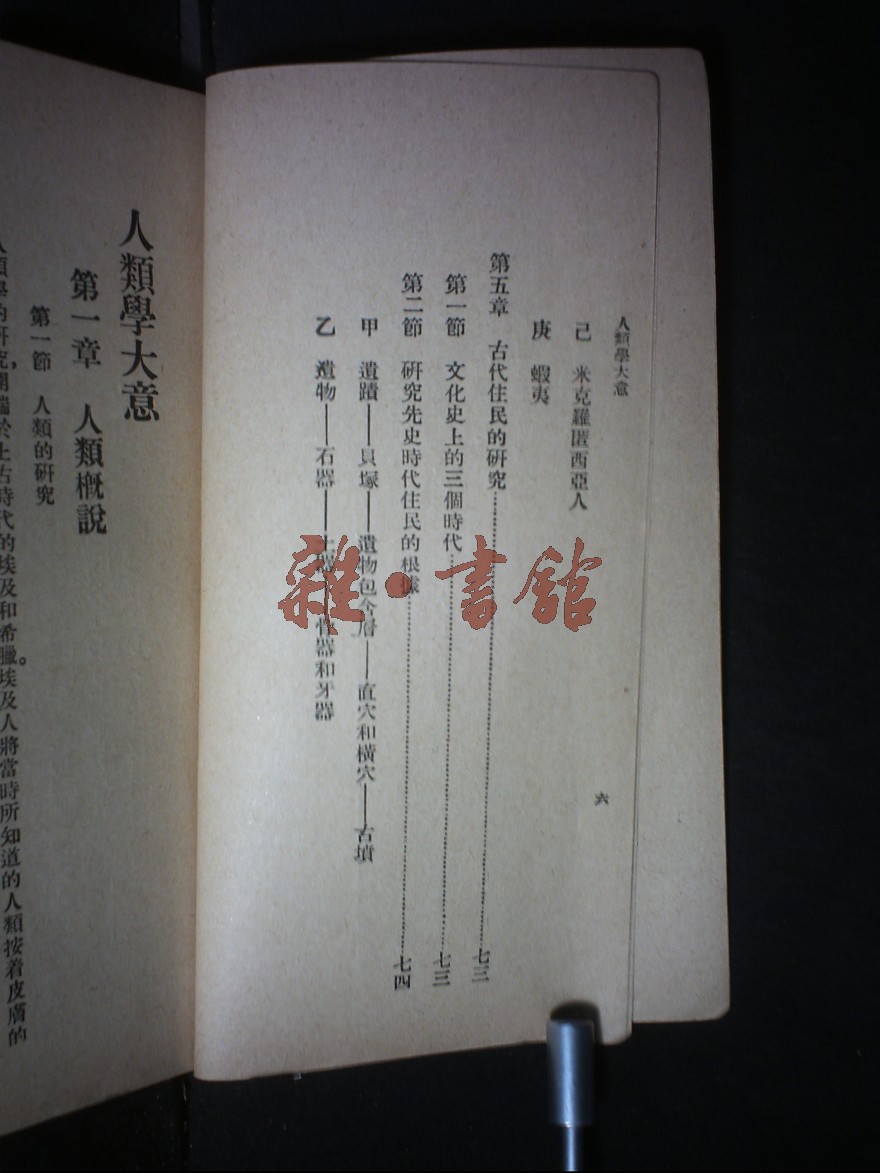 人類學大意
己 米克羅匿西亞人
庚 蝦夷
第五章 古代住民的研究……七三
第一節 文化史上的三個時代……七三
第二節 研究先史時代住民的根據……七四
甲 遺蹟——貝塚——遺物包含層——直穴和橫穴——古墳
乙 遺物——石器——土器——骨器和牙器
六
人類學大意
第一章 人類概說
第一節 人類的研究
人類學的研究,開端於上古時代的埃及和希臘。埃及人將當時所知道的人類按着皮膚的
雜·書館